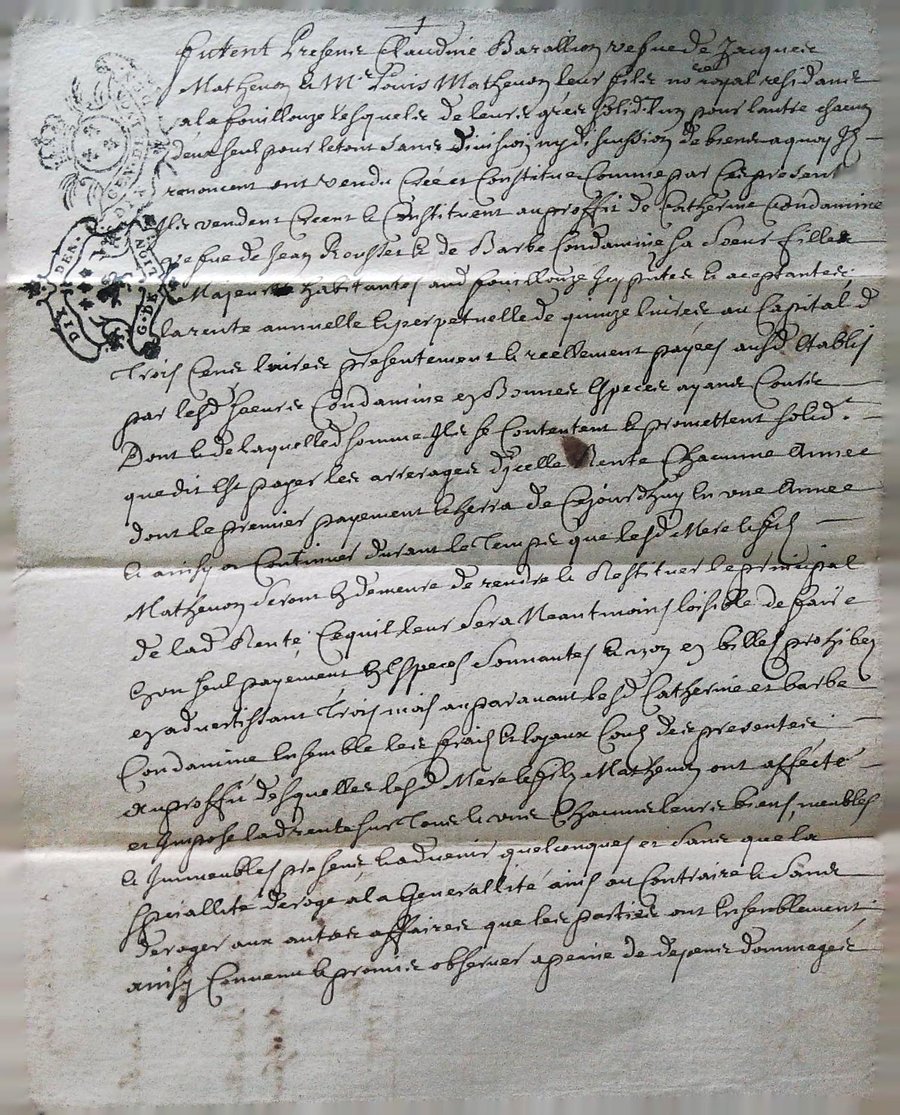 1
furent presens Claudine Barallion vefue de Jacques
Mathevon & Mre Louis Mathevon leur fils no.re royal residans
a la fouillouze lesquels de leurs grés solid. l'un pour lautre chacun
deux seul pour le tout sans division ny discussion de biens aquoy Ils
renoncent ont vendu Créé et Constitué Comme par Ces presentes
Ils vendent Créent & Constituent au proffit de Catherine Condamine
vefue de Jean Rousset & de Barbe Condamine sa Soeur fille
Majeure habitantes aud fouillouze Icy pntes & aceptantes
la rente annuelle & perpetuelle de quinze livres au Capital de
Trois Cens livres presentement & reellement payées ausd Establis
par lesd soeurs Condamine en Bonnes Especes ayans Cours
Dont & de laquelle d somme Ils se Contentent & promettent solid.
que dit Est payer les arrerages d'Icelle Rente Chacunne Année
dont le premier payement Echerra de Cejourdhuy En une Année
& ainsy a Continuer durant le Temps que lesd Mere & fils
Mathevon seront En demeure de rendre & Restituer le principal
de lad Rente, Ce quil leur sera Neantmoins loisible de faire
En un seul payement En Especes sonnantes & non en billes prohibés
en advertissant Trois mois auparavant lesd Catherine et barbe
Condamine Ensemble les fraicts & loyaux Couts des presentes
au proffit desquelles lesd Mere & fils Mathevon ont affecté
et Imposé lad rente sur Tous & uns Chacuns leurs biens, meubles
& Immeubles presens & advenir quelconques et sans que la
speciallité deroge a la Generallité ains au Contraire & sans
deroger aux autres affaires que les parties ont Ensemblement
ainsy Convenu & promis observer a peine de depens dommages
GEN
DEN.
DIX
DEN.
G. DE
LION